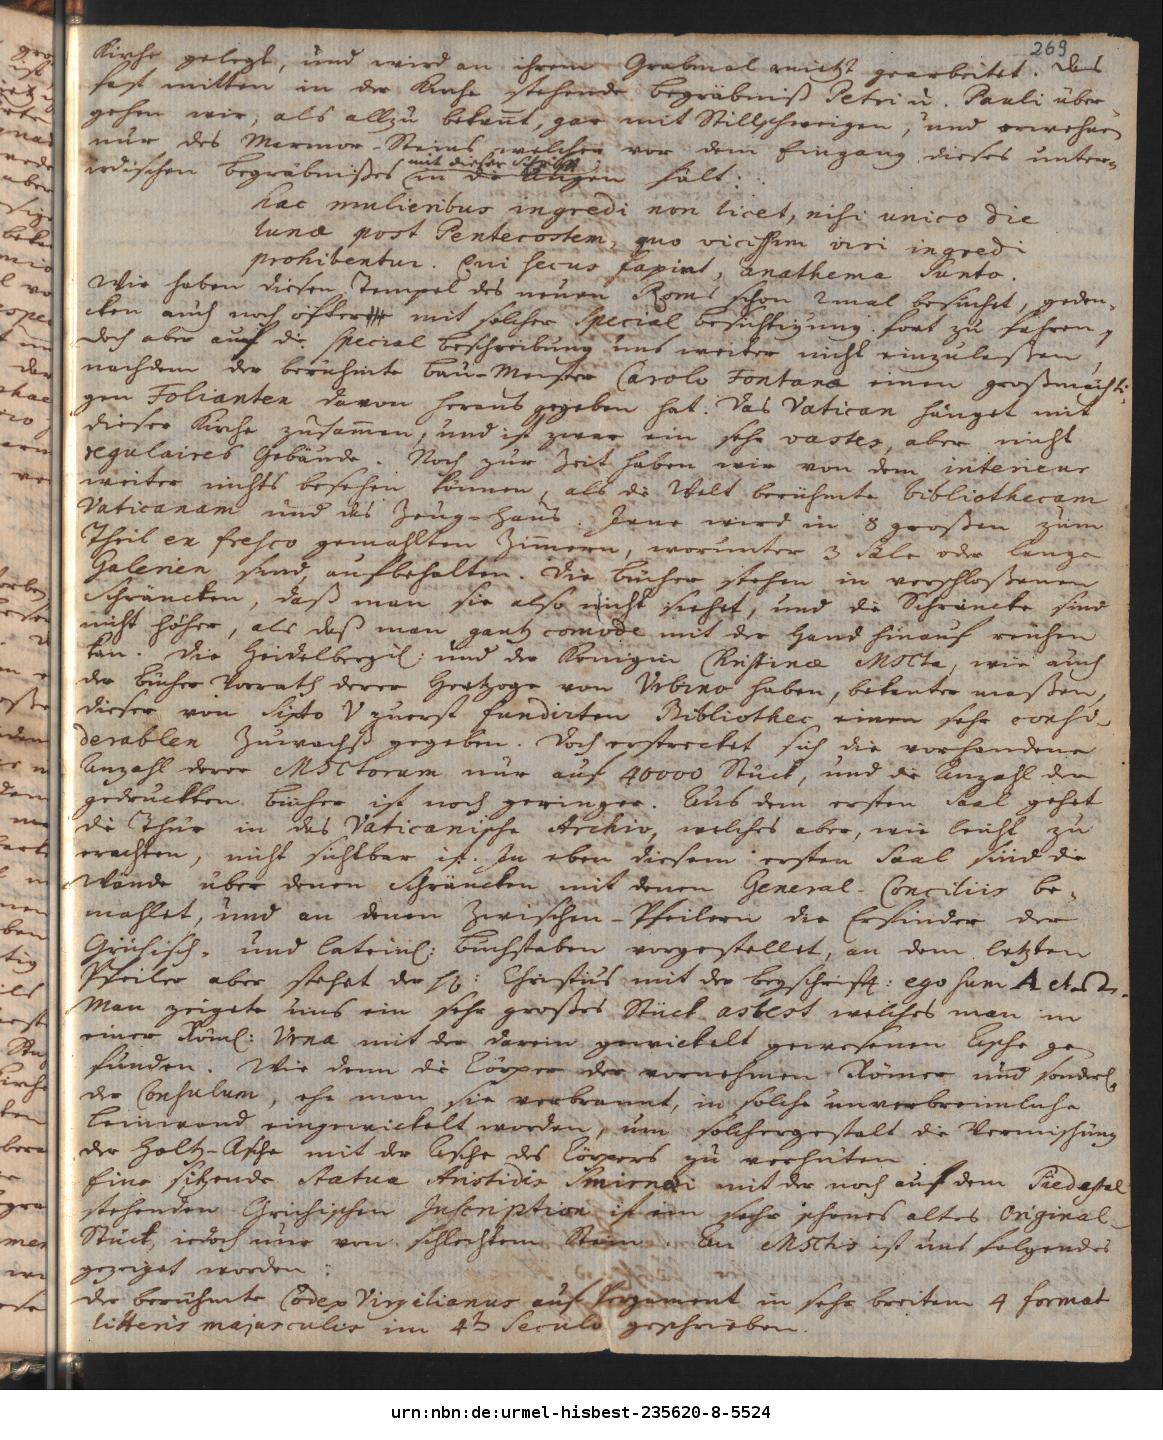 269
Kirche gelegt, und wird an ihrem Grabmal anitzt gearbeitet. Das
fast mitten in der Kirche stehende Begräbniß Petri u. Pauli über-
gehen wir, als allzu bekannt, gar mit Stillschweigen, und erwehnen
nur des Marmor-Steins welcher vor dem Eingang dieses unter-
mit dieser Schrifft
irdischen Begräbnißes in die Augen fält:
hac mulieribus ingredi non licet, nisi unico die
lunæ post Pentecostem, quo vicissim viri ingredi
prohibentur. Qui secus faxint, anathema sunto.
Wir haben diesen Tempel des neuen Roms schon 2mal besucht, geden-
cken auch noch öfter mit solcher special besichtigung fort zu fahren,
doch aber auf die special beschreibung uns weiter nicht einzulaßen,
nachdem der berühmte Bau-Meister Carolo Fontana einen großmächti-
gen Folianten davon heraus gegeben hat. Das Vatican hänget mit
dieser Kirche zusammen, und ist zwar ein sehr vastes, aber nicht
regulaires Gebäude. Noch zur Zeit haben wir von dem interieur
weiter nichts besehen können, als die Welt berühmte bibliothecam
Vaticanam und das Zeug-Haus. Jene wird in 8 großen zum
Theil en fresco gemahlten Zimmern, worunter 3 Säle oder lange
Galerien sind, aufbehalten. Die bücher stehen in verschloßenen
Schräncken, daß man sie also nicht siehet, und die Schräncke sind
nicht höher, als daß man gantz comode mit der Hand hinauf reichen
kan. Die Heidelbergis: und der Königin Christinæ MSCta, wie auch
der bücher Vorrath derer Hertzoge von Urbino haben, bekanter maßen,
dieser von Sixto V zuerst fundirten Bibliothec einen sehr consi-
derablen Zuwachß gegeben. Doch erstrecket sich die vorhandene
Anzahl derer MSCtorum nur auf 40000 Stück, und die Anzahl der
gedruckten bücher ist noch geringer. Aus dem ersten Saal gehet
die Thür in das Vaticanische Archiv, welches aber, wie leicht zu
erachten, nicht sichtbar ist. In eben diesem ersten Saal sind die
Wände über denen Schräncken mit denen General-Conciliis be-
mahlet, und an denen Zwischen-Pfeilern die Erfinder der
Grichisch- und lateinl: buchstaben vorgestellet, an dem letzten
Pfeiler aber stehet der H: Christus mit der beyschrifft: ego sum A et Ω.
Man zeigete uns ein sehr großes Stück asbest welches man in
einer Röml: Urna mit der darein gewickelt gewesenen Asche ge
funden. Wie denn die Cörper der vornehmen Römer und sonderl.
der Consulum, ehe man sie verbrannt, in solche unverbrennliche
Leinwand eingewickelt worden, um solchergestalt die Vermischung
der Holtz-Asche mit der Asche des Cörpers zu verhüten.
Eine sitzende Statua Aristidis Smirnæi mit der noch auf dem Piedestal
stehenden Grichischen Inscription ist ein sehr schönes altes Original-
Stück, iedoch nur von schlechtem Stein. An MSCtis ist uns folgendes
gezeiget worden:
der berühmte Codex Virgilianus auf Pergament in sehr breitem 4 format
litteris majusculis im 4tn Seculo geschrieben.
urn:nbn:de:urmel-hisbest-235620-8-5524